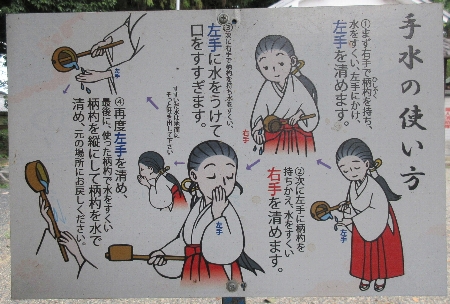 手水の使い方
①まず右手で柄杓を持ち、
水をすくい、左手にかけ、
左手を清めます。
左手
②次に左手に柄杓を
持ちかえ、水をすくい
右手を清めます。
右手
③次に右手で柄杓を持ち水をすくい、
左手に水をうけて
口をすすぎます。
左手
④再度左手を清め、
最後に、使った柄杓で水をすくい
柄杓を縦にして柄杓を水で
清め、元の場所にお戻しください。
左手